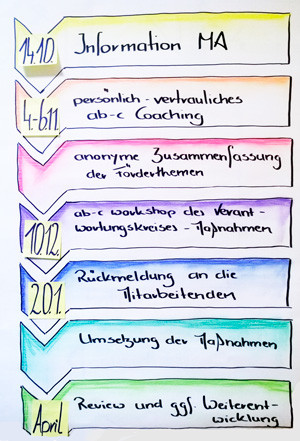 14.10.
Information MA
4.-6.11.
persönlich - vertrauliches
ab-c Coaching
anonyme Zusammenfassung
der Förderthemen
10.12.
ab-c workshop des Verant-
wortungskreises - Maßnahmen
20.1.
Rückmeldung an die
Mitarbeitenden
Umsetzung der Maßnahmen
April
Review und ggf. Weiterent-
wicklung